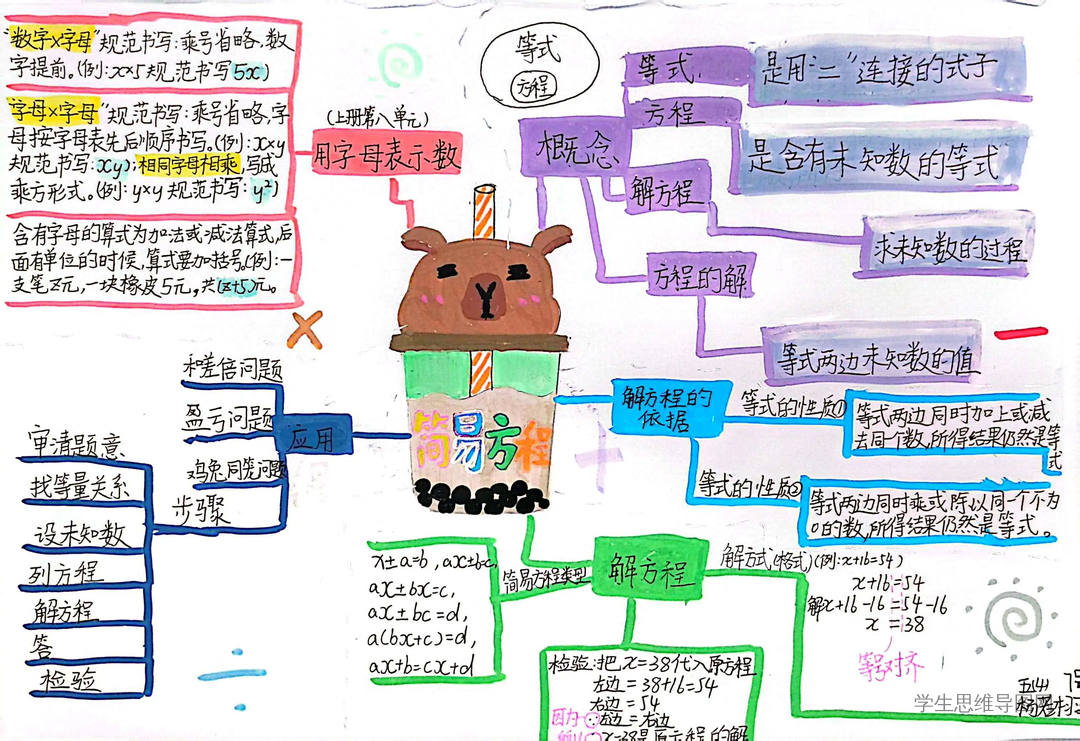 "数字×字母"规范书写:乘号省略,数
字提前。(例:x×5 规范书写 5x)
"字母×字母"规范书写:乘号省略,字
母按字母表先后顺序书写。(例:x×y
规范书写:xy);相同字母相乘,写成
乘方形式。(例:y×y 规范书写:y²)
含有字母的算式为加法或减法算式,后
面有单位的时候,算式要加括号。(例:一
支笔z元,一块橡皮5元。共(z+5)元。
(上册第八单元)
用字母表示数
等式
方程
概念
等式
是用"="连接的式子
方程
是含有未知数的等式
解方程
求未知数的过程
方程的解
等式两边未知数的值
简易方程
解方程的
依据
等式的性质①
等式两边同时加上或减
去同一个数,所得结果仍然是等
式
等式的性质②
等式两边同时乘或除以同一个不为
0的数,所得结果仍然是等式。
应用
和差倍问题
盈亏问题
鸡兔同笼问题
步骤
审清题意
找等量关系
设未知数
列方程
解方程
答
检验
解方程
简易方程类型
x±a=b,ax±b=c,
ax±bx=c,
ax±bc=d,
a(bx+c)=d,
ax+b=cx+d
解方式(格式)(例:x+16=54)
x+16=54
解x+16-16=54-16
x=38
等号对齐
检验:把x=38代入原方程
左边=38+16=54
右边=54
因为
左边=右边
所以
x=38是原方程的解
学生思维导图